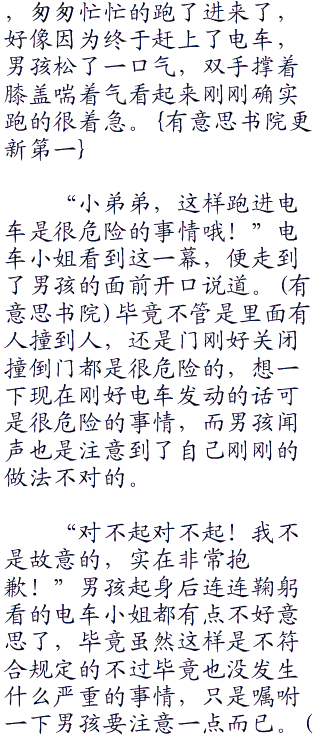 ，匆匆忙忙的跑了进来了，
好像因为终于赶上了电车，
男孩松了一口气，双手撑着
膝盖喘着气看起来刚刚确实
跑的很着急。{有意思书院更
新第一}
“小弟弟，这样跑进电
车是很危险的事情哦！”电
车小姐看到这一幕，便走到
了男孩的面前开口说道。(有
意思书院)毕竟不管是里面有
人撞到人，还是门刚好关闭
撞倒门都是很危险的，想一
下现在刚好电车发动的话可
是很危险的事情，而男孩闻
声也是注意到了自己刚刚的
做法不对的。
“对不起对不起！我不
是故意的，实在非常抱
歉！”男孩起身后连连鞠躬
看的电车小姐都有点不好意
思了，毕竟虽然这样是不符
合规定的不过毕竟也没发生
什么严重的事情，只是嘱咐
一下男孩要注意一点而已。(